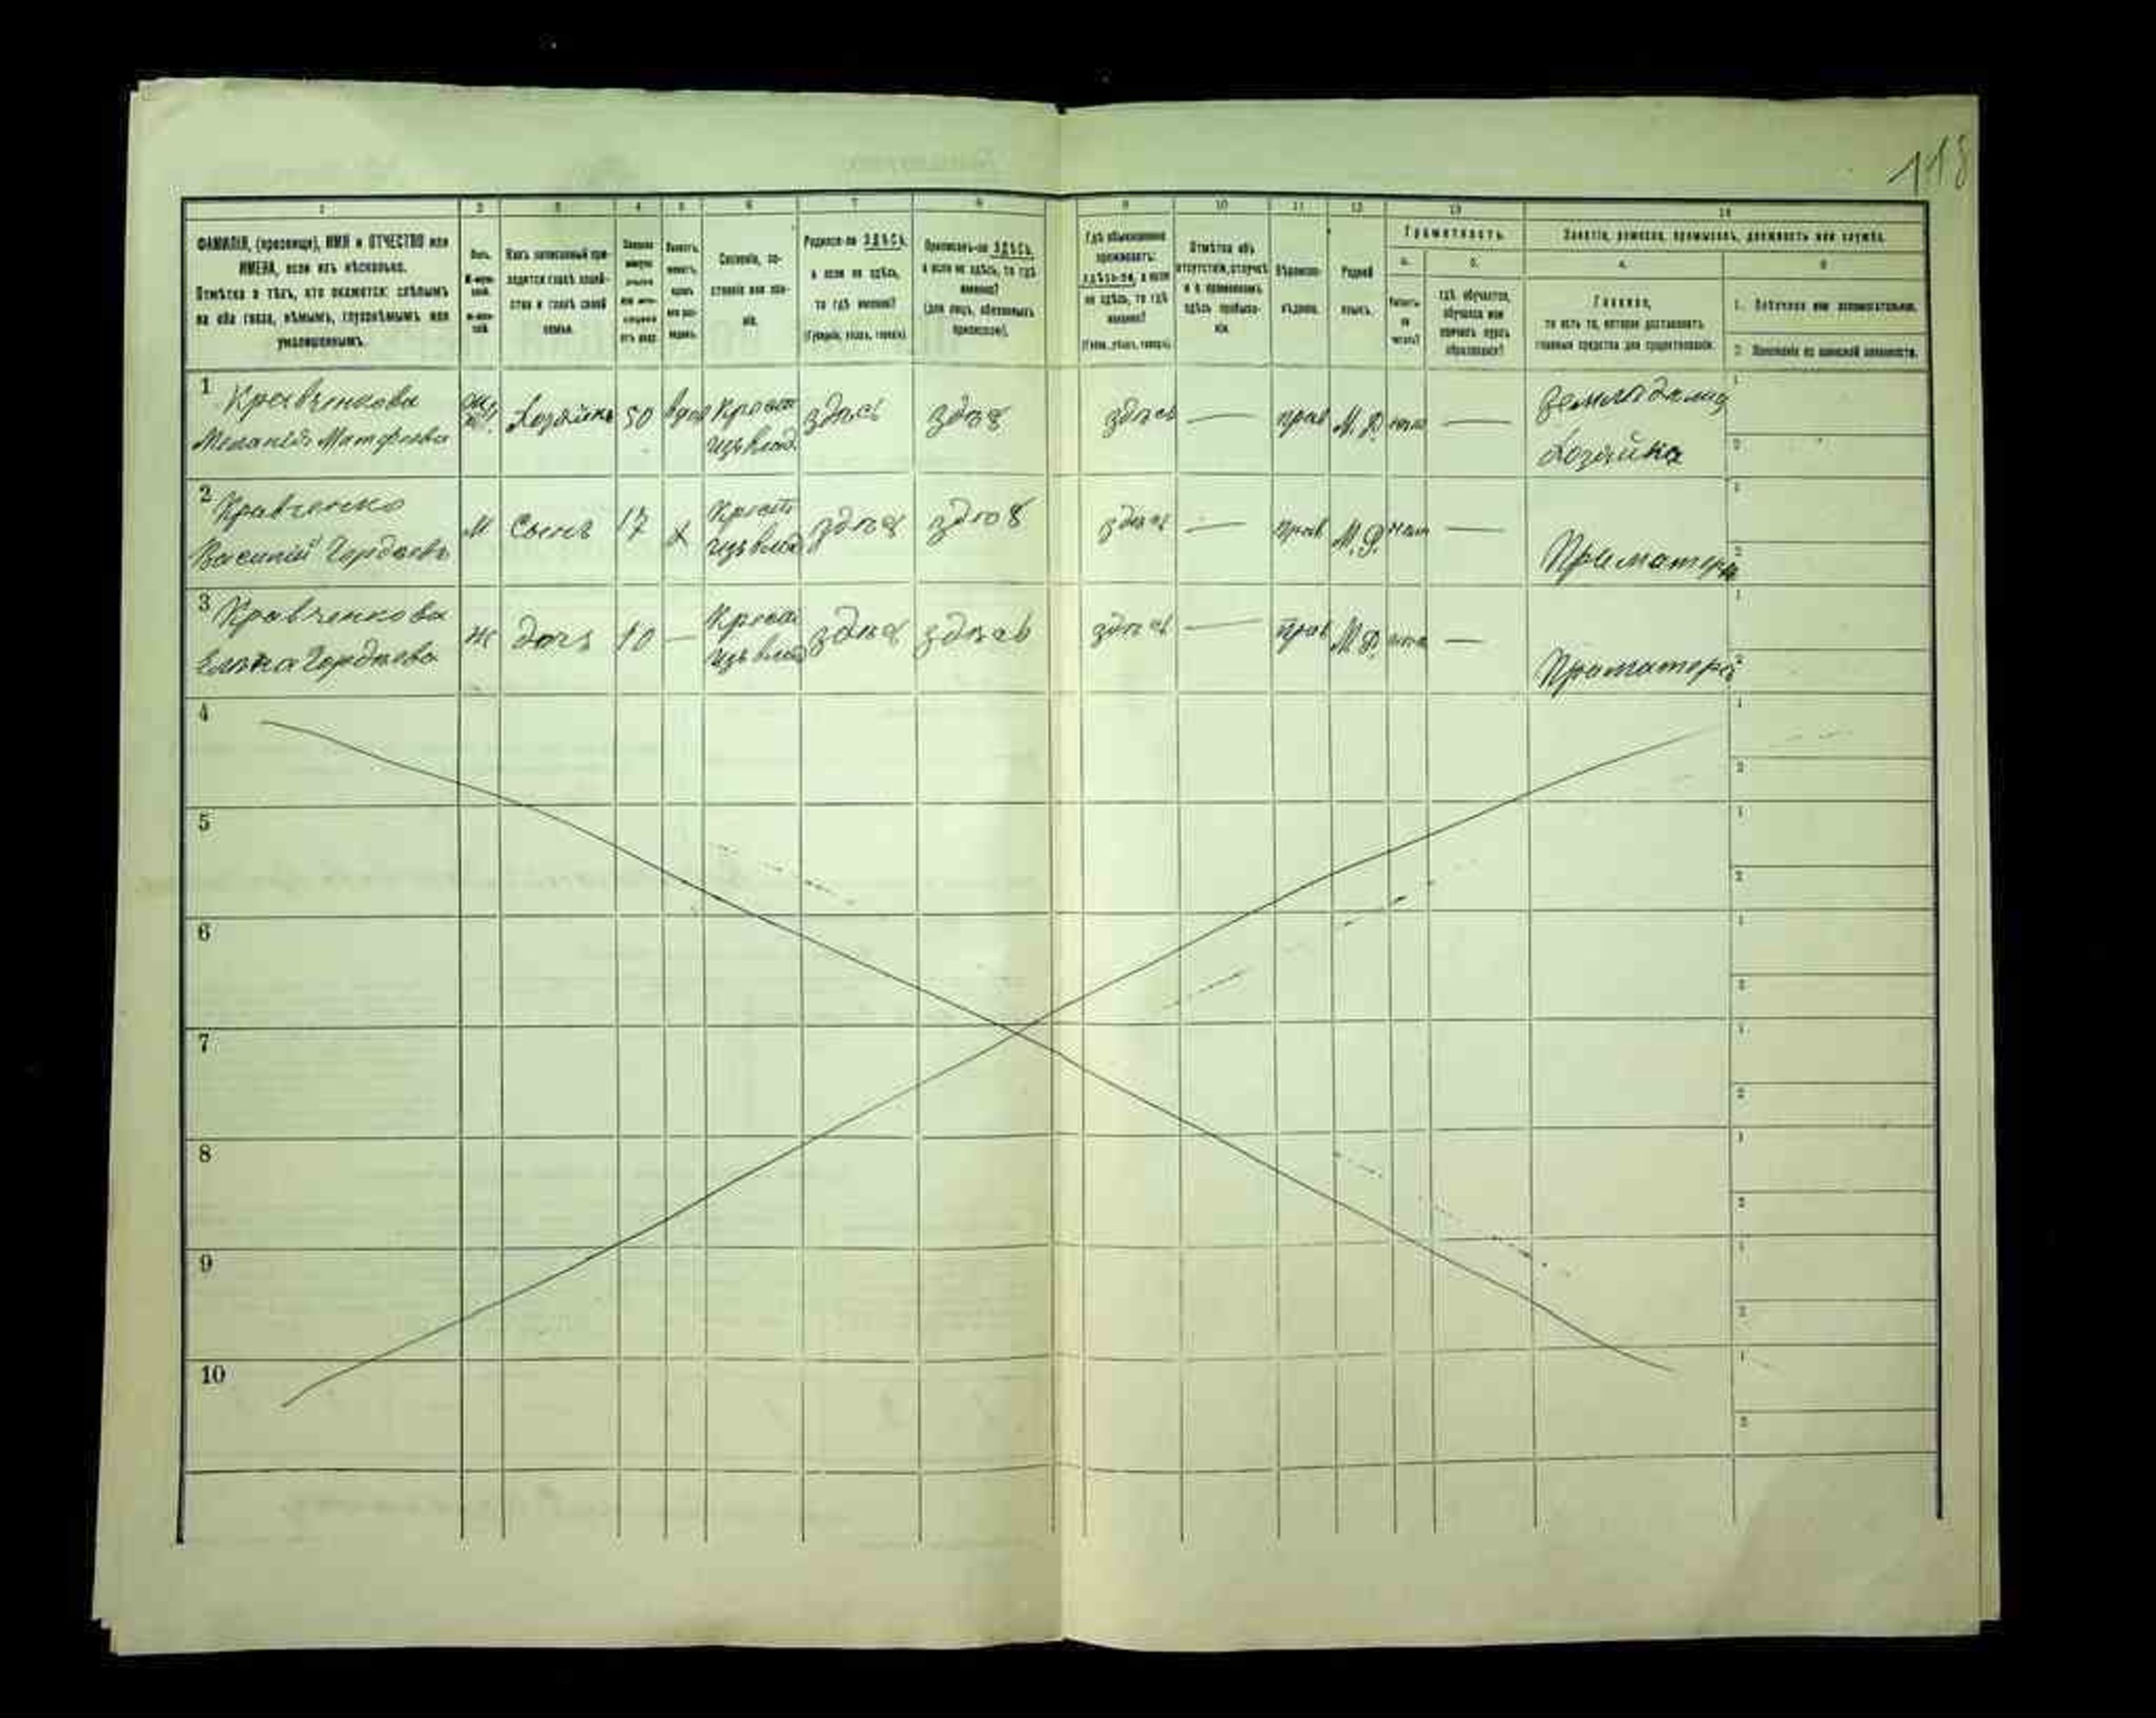 118
1 2 3 4 5 6 7 8 9 10 11 12 13 14
ФАМИЛІЯ, (прозвище), ИМЯ и ОТЧЕСТВО или
ИМЕНА, если ихъ нѣсколько.
Отмѣтка о тѣхъ, кто окажется: слѣпымъ
на оба глаза, нѣмымъ, глухонѣмымъ или
умалишеннымъ.
Полъ.
Какъ записанный при-
ходится главѣ хозяй-
ства и главѣ своей
семьи.
Сословіе, со-
стояніе или зва-
ніе.
Родился-ли ЗДѢСЬ,
а если не здѣсь,
то гдѣ именно?
(Губернія, уѣздъ, городъ).
Приписанъ-ли ЗДѢСЬ,
а если не здѣсь, то гдѣ
именно?
(для лицъ, обязанныхъ
припискою).
Гдѣ обыкновенно
проживаетъ:
здѣсь-ли, а если
не здѣсь, то гдѣ
именно?
(Губер., уѣздъ, городъ).
Отмѣтка объ
отсутствіи, отлучкѣ
и о временномъ
здѣсь пребыва-
ніи.
Вѣроиспо-
вѣданіе.
Родной
языкъ.
Грамотность.
а. б.
Умѣетъ-
ли
читать?
гдѣ обучается,
обучался или
кончилъ курсъ
образованія?
Занятіе, ремесло, промыселъ, должность или служба.
а. б
Главное,
то есть то, которое доставляетъ
главныя средства для существованія.
1. Побочное или вспомогательное.
2. Положеніе по воинской повинности.
1 Кравченкова
Меланія Матфеева
Хозяйка 50 вдов Крест
изъ влад.
здѣсь здѣсь здѣсь — прав М.Р. нет — Земледѣліе
Хозяйка
2 Кравченко
Василій Гордѣевъ
М Сынъ 17 х Крест
изъ влад
здѣсь здѣсь здѣсь — прав М.Р. нет — При матери
3 Кравченкова
Елена Гордѣева
Ж дочь 10 — Крест
изъ влад
здѣсь здѣсь здѣсь — прав М.Р. нет — При матери
4
5
6
7
8
9
10